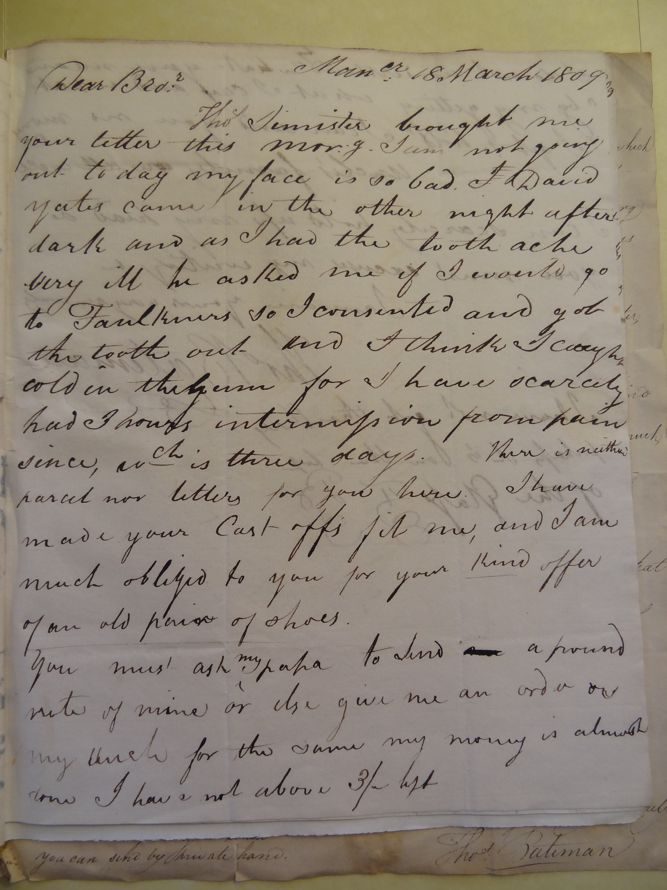 Mancr. 18 March 1809
Dear Bror.
Thos. Simister brought me
your letter this morg. I am not going
out to day my face is so bad. I David
Yates came in the other night after
dark and as I had the tooth ache
very ill he asked me if I would go
to Faulkners so I consented and got
the tooth out and I think I caught
cold in the gum for I have scarcely
had I hours intermission from pain
since, wch is three days. There is neither
parcel nor letters for you here. I have
made your Cast offs fit me, and I am
much obliged to you for your kind offer
of an old pair of shoes.
You must ask my papa to send a pound
note of mine or else give me an order on
my Uncle for the same my money is almost
done I have not above 3/- left
you can send by private hand.
Thos. Bateman